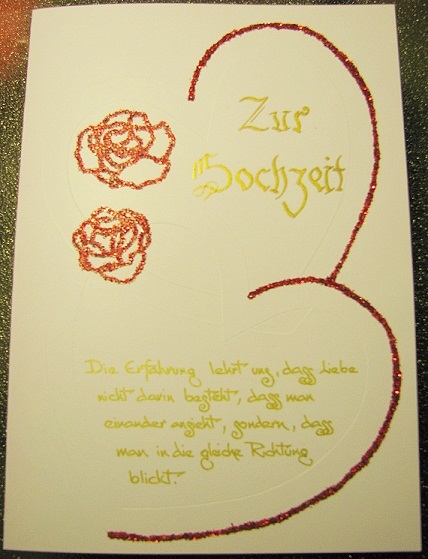 Zur
Hochzeit
Die Erfahrung lehrt uns, dass Liebe
nicht darin besteht, dass man
einander ansieht, sondern, dass
man in die gleiche Richtung
blickt.